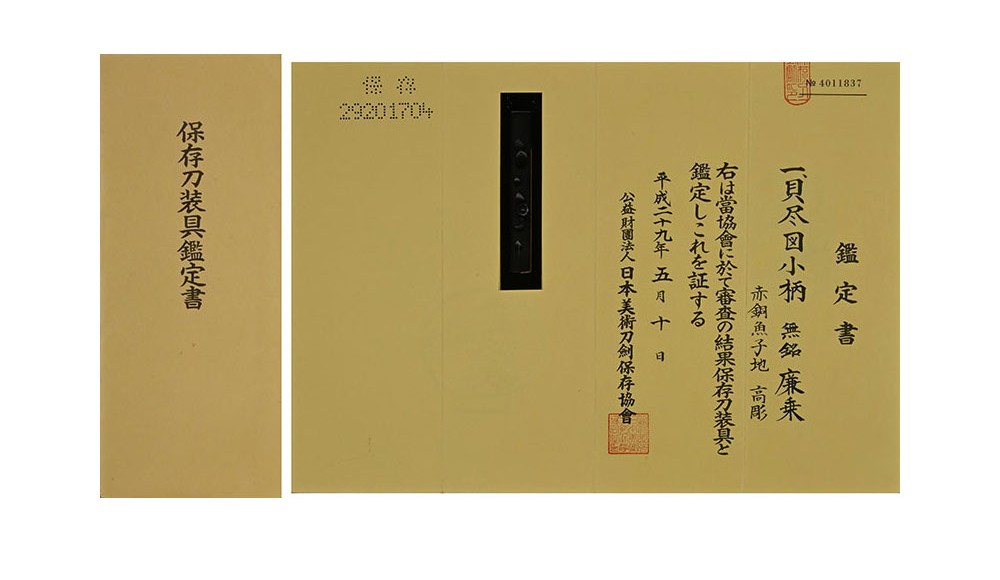 保存刀装具鑑定書
№ 4011837
鑑定書
一、貝尽図小柄 無銘 廉乗
赤銅魚子地 高彫
右は當協會に於て審査の結果保存刀装具と
鑑定しこれを証する
平成二十九年 五月十日
公益財團法人 日本美術刀劍保存協會
保存
29201704